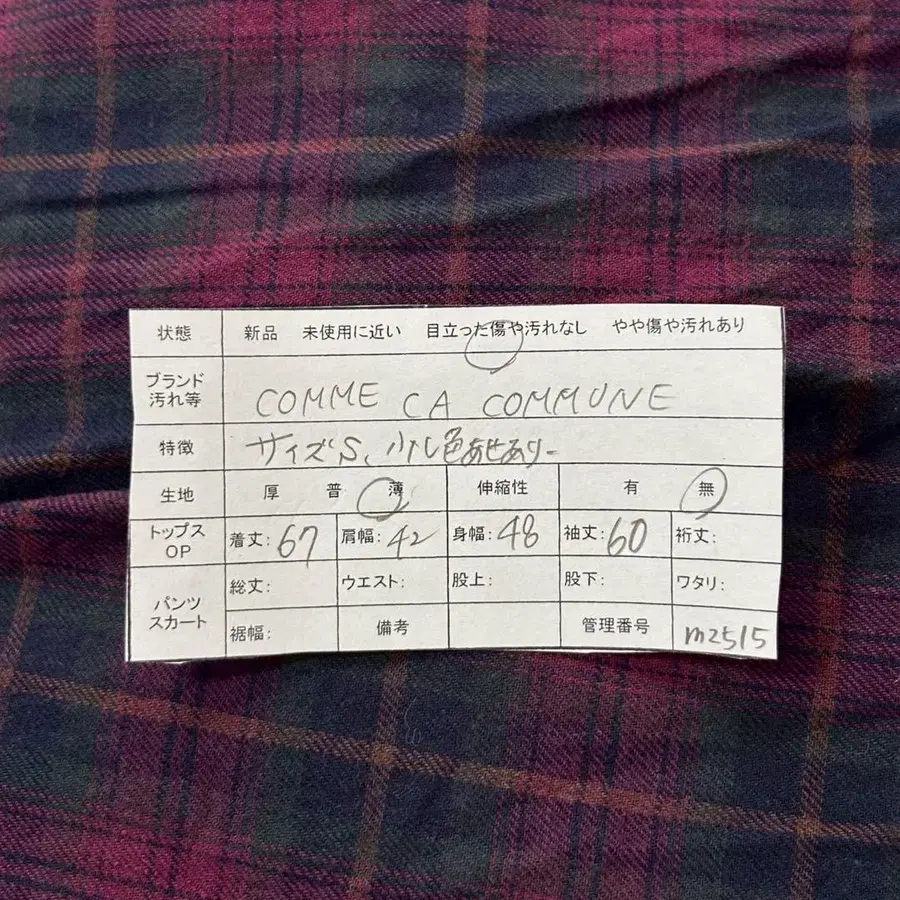 状態 新品 未使用に近い 目立った傷や汚れなし やや傷や汚れあり
ブランド
汚れ等
COMME CA COMMUNE
特徴 サイズS、少し色あせあり
生地 厚 普 薄 伸縮性 有 無
トップス
OP
着丈:67 肩幅:42 身幅:48 袖丈:60 裄丈:
パンツ
スカート
総丈: ウエスト: 股上: 股下: ワタリ:
裾幅: 備考 管理番号 m2515